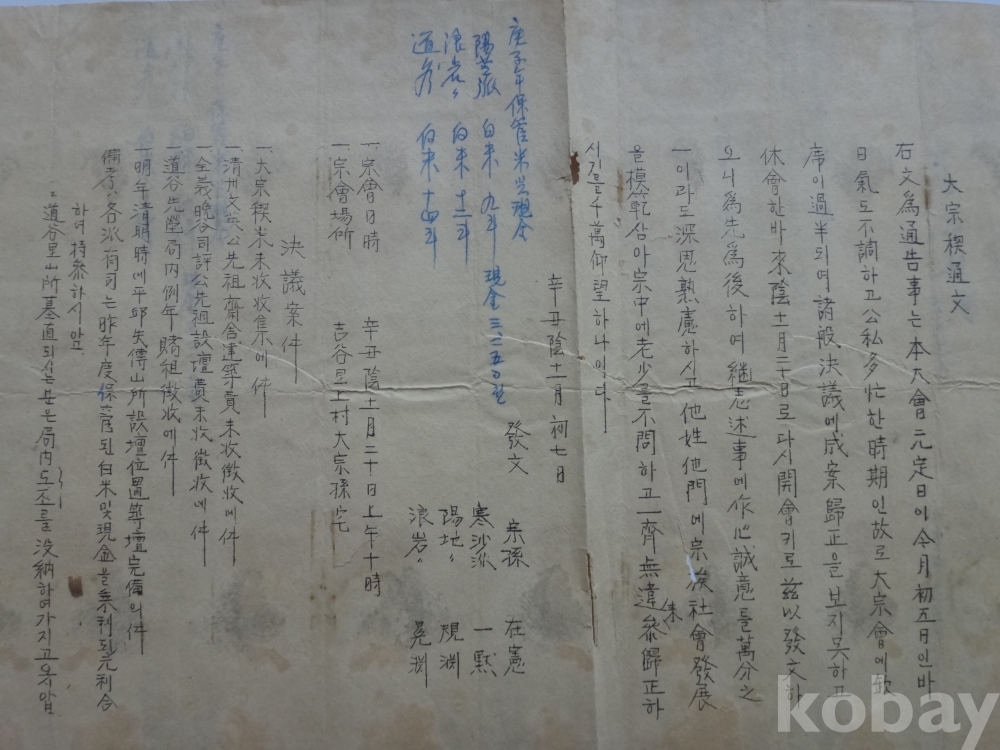 大宗稧通文
右文爲通告事는 本大會 元定日이 今月 初五日인바
日氣도 不調하고 公私多忙한 時期인 故로 大宗會에 欽
席이 過半되여 諸般 決議에 成案歸正을 보지못하고
休會한바 來陰十一月二十日로 다시 開會키로 玆以發文하
오니 爲先爲後하여 継志述事에 作心 誠意를 萬分之
一이라도 深思熟慮하시고 他姓他門에 宗族社會發展
을 模範삼아 宗中에 老少를 不問하고 一齊 無違 參席 歸正하
시기를 千萬仰望하나이다
辛丑陰十一月 初七日
發文 宗孫 在憲
寒沙派 一黙
陽地〃 規淵
浪岩〃 晃淵
庚子年保管米와 現金
陽芝派 白米 九斗 現金 三、二五〇원
浪岩〃 白米 十二斗
道谷 白米 十四斗
一 宗會日時 辛丑陰十一月二十日上午十時
一 宗會場所 吉谷里上村大宗孫宅
決議案件
一 大宗稧米未收收集의 件
一 清州文 公先祖齋舍建築費未收徴收에 件
一 全義晩谷司評公先祖設壇費未收徴收에 件
一 道谷先塋局內例年賭租徴收에 件
一 明年清明時에 平邱失傳山所設壇位置等壇完備의 件
備考 各派有司는 昨年度保管된 白米 및 現金을 利되 元利合
하여 持參하시압
〃道谷里山所墓直되시는분은 局內도조를 沒納하여가지고 옷압